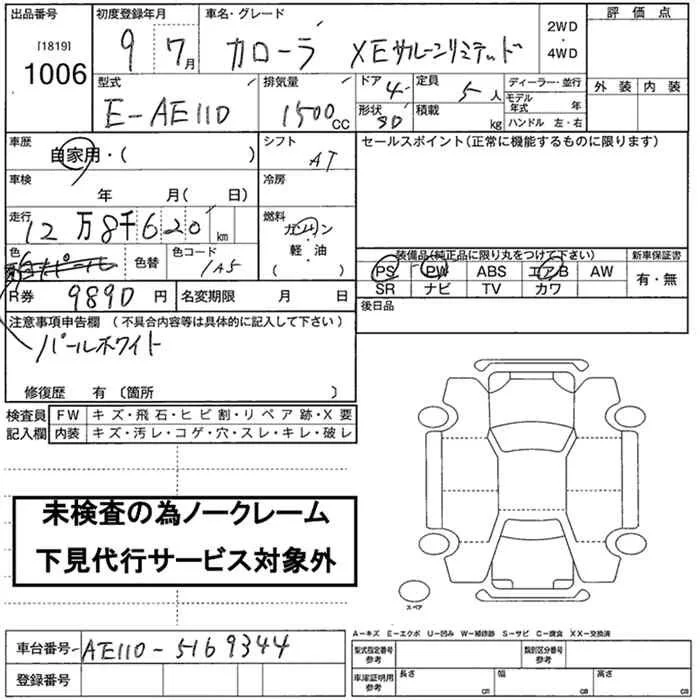 出品番号 初度登録年月 車名・グレード 評価点
[1819] 1006 9 7月 カローラ XEサルーンリミテッド 2WD・4WD
型式 排気量 ドア 4 定員 5人 ディーラー・並行 外装 内装
E-AE110 1500cc 形状 SD 積載 kg モデル年式 年
ハンドル 左・右
車歴 シフト セールスポイント(正常に機能するものに限ります)
自家用・( ) AT
車検 冷房
年 月( 日)
走行 燃料
12万8千620km ガソリン・軽・油( )
色 色替 色コード 1A5
装備品(純正品に限り丸をつけて下さい) 新車保証書
PS PW ABS エアB AW 有・無
SR ナビ TV カワ
R券 9890円 名変期限 月 日 後日品
注意事項申告欄(不具合内容等は具体的に記入して下さい)
パールホワイト
修復歴 有(箇所 )
検査員 FW キズ・飛石・ヒビ割・リペア跡・X要
記入欄 内装 キズ・汚レ・コゲ・穴・スレ・キレ・破レ
未検査の為ノークレーム
下見代行サービス対象外
スペア
A-キズ E-エクボ U-凹み W-補修跡 S-サビ C-腐食 XX-交換済
車台番号 AE110-5169344
型式指定番号 参考 類別区分番号 参考
登録番号
車庫証明用 参考 長さ cm 幅 cm 高さ cm